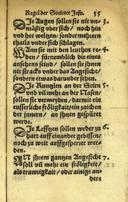 Regel der Societet Jesu. 35
Die Augen sollen sie nit vn-
mässig vbersich/ noch hin
vnd her welzen/ sonder mehrern
theils vnder sich schlagen.
Wann sie mit den leuthen re-
den/ fürnemblich die eines
ansehens sind/ sollen sie jhnen
nit stracks vnder das Angesicht/
sondern etwas darunder sehen.
Die Runzlen an der Stirn
vnd vil mehr an der Nasen
sollen sie vermeyden/ damit ein
eusserliche frölichkeit ein anzei-
gen der jnnern gespürt
werde.
Die Lefftzen sollen weder zu
hart auff einander getruckt/
noch zu weit auffgesperret
sein.
In jhrem gantzen Angesicht
soll vil mehr ein frölichkeit/
als traurigkeit/ oder ainige
an-